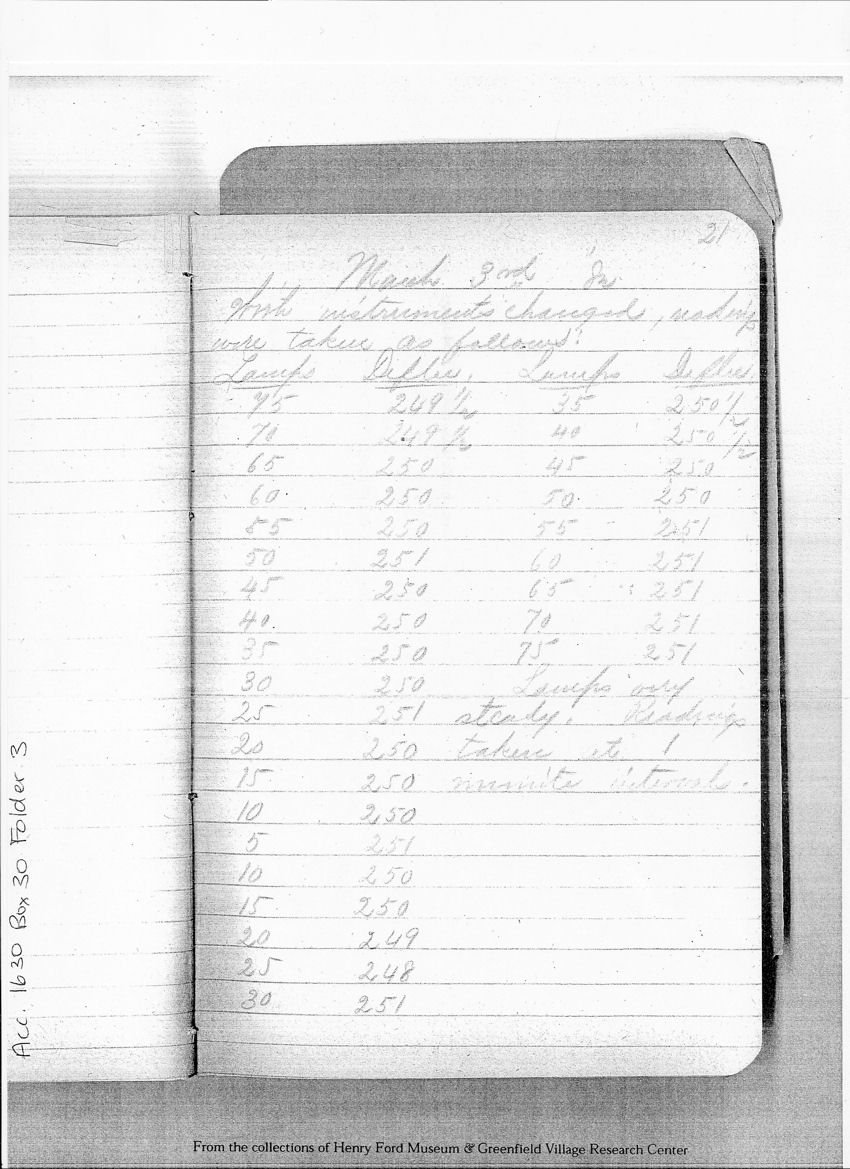 21
March 3rd In
which instruments changed, readings
were taken as follows:
Lamps Deflec. Lamps Deflec.
75 249 1/2 35 250 1/2
70 249 1/2 40 250 1/2
65 250 45 250
60 250 50 250
55 250 55 251
50 251 60 251
45 250 65 251
40 250 70 251
35 250 75 251
30 250 Lamps very
25 251 steady. Readings
20 250 taken at 1
15 250 minute intervals.
10 250
5 251
10 250
15 250
20 249
25 248
30 251
Acc. 1630 Box 30 Folder 3
From the collections of Henry Ford Museum & Greenfield Village Research Center